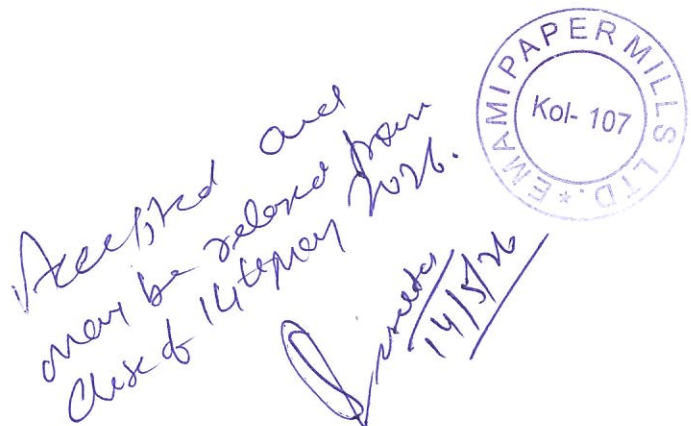 Accepted and
may be relased from
close of 14th May 2026.
14/5/26
EMAMI PAPER MILLS LTD. *
Kol- 107